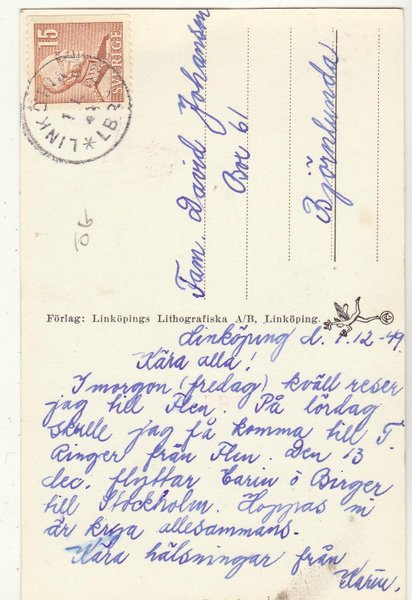 15
SVERIGE
LINKÖPING
LBR
Fam. David Johansson
Box 61
Björnlunda
Förlag: Linköpings Lithografiska A/B, Linköping.
Linköping d. 1.12-49
Kära alla!
I morgon (fredag) kväll reser
jag till Flen. På lördag
skulle jag få komma till T.
Ringer från Flen. Den 13
dec. flyttar Carin o Birger
till Stockholm. Hoppas ni
är krya allesammans.
Kära hälsningar från
Karin.